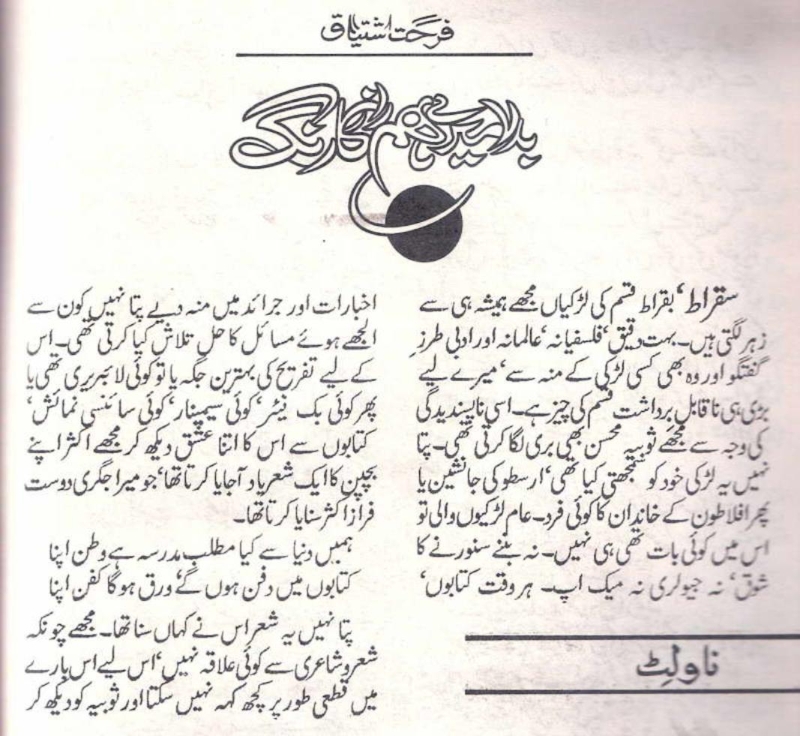 فرحت اشتیاق
بدلا میرے ہمدم نے کا رنگ
سقراط‘ بقراط قسم کی لڑکیاں مجھے ہمیشہ ہی سے
زہر لگتی ہیں۔ بہت دقیق‘ فلسفیانہ‘ عالمانہ اور ادبی طرز
گفتگو اور وہ بھی کسی لڑکی کے منہ سے‘ میرے لیے
بڑی ہی ناقابل برداشت قسم کی چیز ہے۔ اسی ناپسندیدگی
کی وجہ سے مجھے ثوبیہ محسن بھی بری لگا کرتی تھی۔ پتا
نہیں یہ لڑکی خود کو سمجھتی کیا تھی‘ ارسطو کی جانشین یا
پھر افلاطون کے خاندان کا کوئی فرد۔ عام لڑکیوں والی تو
اس میں کوئی بات تھی ہی نہیں۔ نہ بننے سنورنے کا
شوق‘ نہ جیولری نہ میک اپ۔ ہر وقت کتابوں‘
ناولٹ
اخبارات اور جرائد میں منہ دیے پتا نہیں کون سے
الجھے ہوئے مسائل کا حل تلاش کیا کرتی تھی۔ اس
کے لیے تفریح کی بہترین جگہ یا تو کوئی لائبریری تھی یا
پھر کوئی بک فیئر‘ کوئی سیمینار‘ کوئی سائنسی نمائش‘
کتابوں سے اس کا اتنا عشق دیکھ کر مجھے اکثر اپنے
بچپن کا ایک شعر یاد آجایا کرتا تھا‘ جو میرا جگری دوست
فراز اکثر سنایا کرتا تھا۔
ہمیں دنیا سے کیا مطلب مدرسہ ہے وطن اپنا
کتابوں میں دفن ہوں گے‘ ورق ہوگا کفن اپنا
پتا نہیں یہ شعر اس نے کہاں سنا تھا۔ مجھے چونکہ
شعر و شاعری سے کوئی علاقہ نہیں‘ اس لیے اس بارے
میں قطعی طور پر کچھ کہہ نہیں سکتا اور ثوبیہ کو دیکھ کر